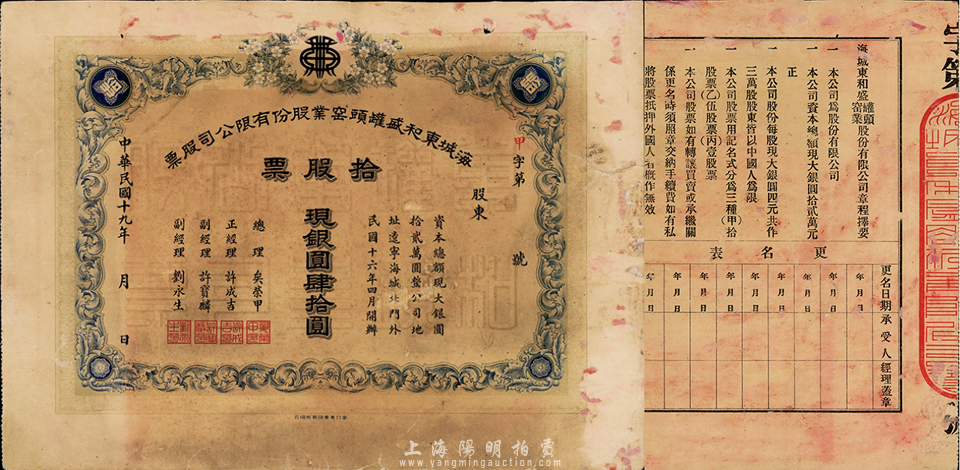 海城東和盛罐頭窑業股份有限公司股票
拾股票
甲字第
號
股東
資本總額現大銀圓
拾貳萬圓整公司地
址遼寧海城北門外
民國十六年四月開辦
現銀圓肆拾圓
總理 矣榮甲
正經理 許成吉
副經理 許寶麟
副經理 劉永生
中華民國十九年 月 日
海城東和盛罐頭窑業股份有限公司章程擇要
一 本公司為股份有限公司
一 本公司資本總額現大銀圓拾貳萬元
正
一 本公司股份每股現大銀圓四元共作
三萬股股東皆以中國人為限
一 本公司股票用記名式分為三種(甲)拾
股票(乙)伍股票(丙)壹股票
一 本公司股票如有轉讓買賣或承繼關
係更名時須照章交納手續費如有私
將股票抵押外國人者概作無效
更名表
更名日期
承受人
經理蓋章
年月日
年月日
年月日
年月日
年月日
年月日
年月日
年月日
字第
上海陽明拍賣
www.yangmingauction.com